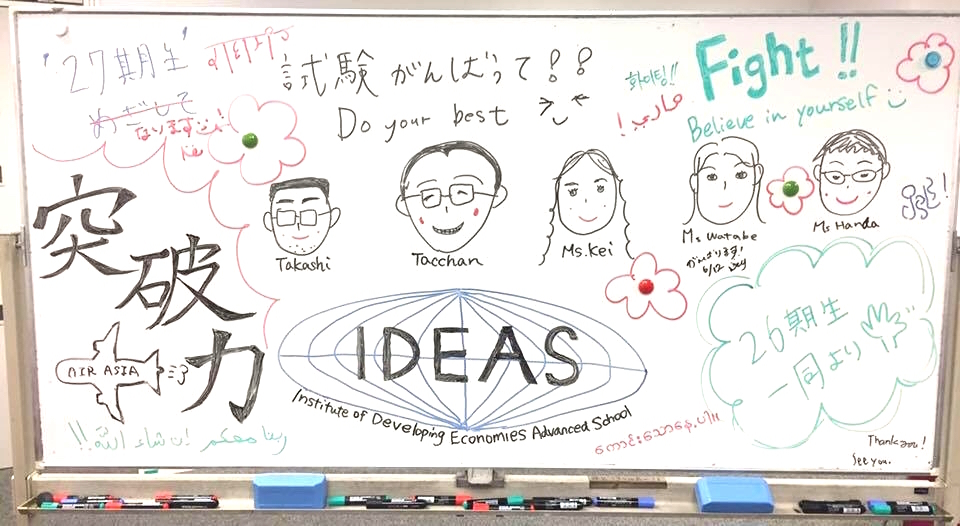 '27期生'
試験 がんばって！？
Do your best
화이팅!!
Fight!!
Believe in yourself
めざして
なります
突破力
Takashi
Tacchan
Ms. Kei
Ms Watabe
がんばります！
6/12
Ms Handa
AIR ASIA
IDEAS
Institute of Developing Economies Advanced School
26期生
一同より
ربنا معكم إن شاء الله!!
Thank you!
See you.